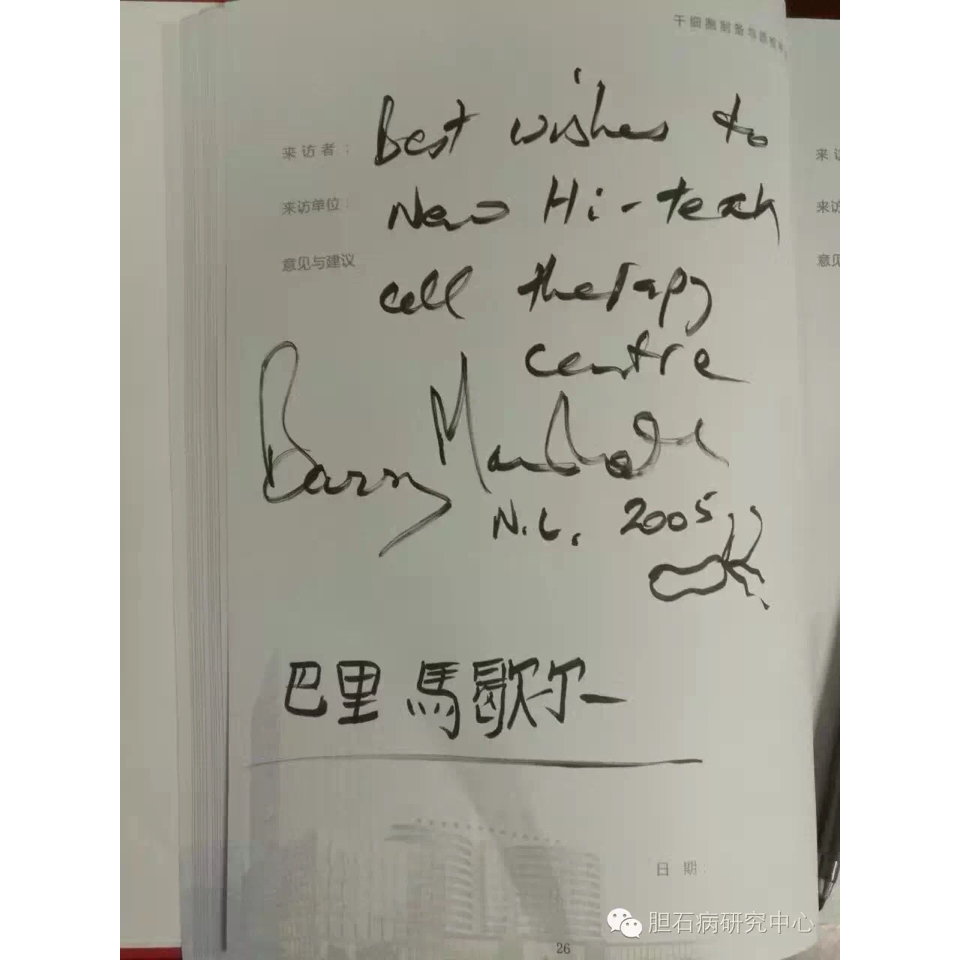 干细胞制备与质检
来访者：
Best wishes to
来访单位
New Hi-tech
意见与建议
cell therapy
centre
Barry Marshall
N.L. 2005
巴里 馬歇尔
日 期
26
胆石病研究中心
来
来访
意见